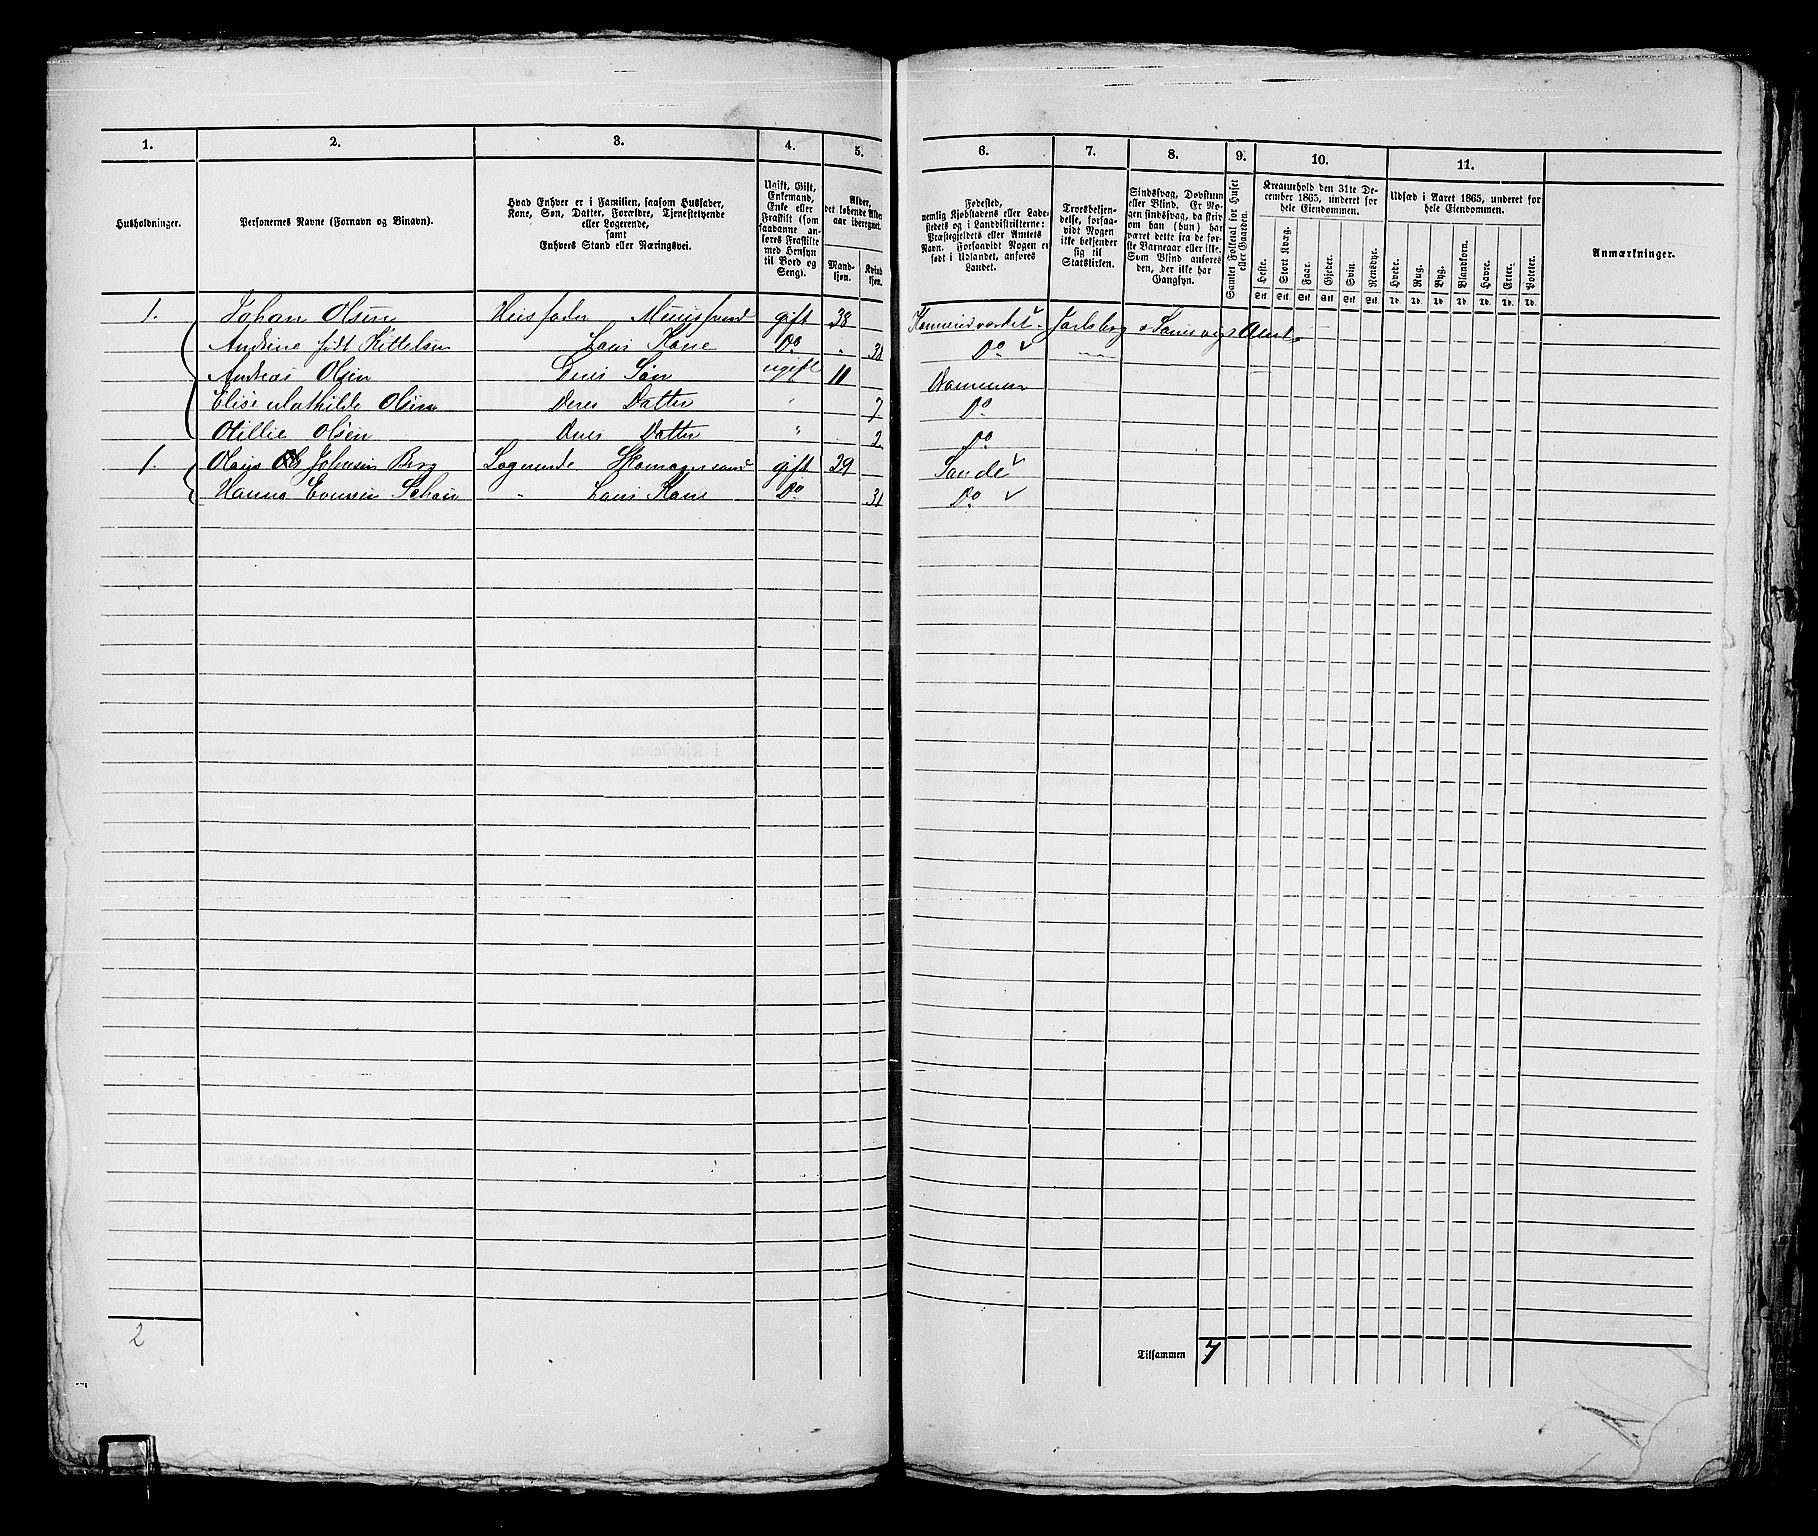 1.
2.
3.
4.
5.
Husholdninger.
Personernes Navne (Fornavn og Binavn).
Hvad Enhver er i Familien, saasom Husfader,
Kone, Søn, Datter, Forældre, Tjenestetyende
eller Logerende,
samt
Enhvers Stand eller Næringsvei.
Ugift, Gift,
Enkemand,
Enke eller
Fraskilt (som
saadanne an-
føres Fraskilte
med Hensyn
til Bord og
Seng).
Alder,
det løbende Alders-
aar iberegnet.
Mand-
kjøn.
Kvind
kjøn.
1. Johan Olsen Husfader gift 38
Andrine født Kittelsen Hans Kone Do 38
Andreas Olsen Deres Søn ugift 11
Elise Mathilde Olsen Deres Datter " 7
Otillie Olsen Deres Datter " 2
1. Olaus Johnsen Berg Logerende Skomagersvend gift 29
Hanna Evensen " Hans Kone Do 31
2
6.
7.
8.
9.
10.
11.
Fødested,
nemlig Kjøbstadens eller Lade-
stedets og i Landdistrikterne:
Præstegjeldets eller Amtets
Navn. Forsaavidt Nogen er
født i Udlandet, anføres
Landet.
Troesbekjen-
delse, forsaa-
vidt Nogen
ikke bekjender
sig til
Statskirken.
Sindssvag, Døvstum
eller Blind. Er No-
gen sindssvag, da skri-
ves om han (hun) har
været dette fra de før-
ste Barneaar eller ikke.
Som Blind anføres
den, der ikke har
Gangsyn.
Samlet Folketal for Huset
eller Gaarden.
Kreaturhold den 31te De-
cember 1865, underet for
hele Eiendommen.
Heste.
Stort Kvæg.
Faar.
Gjeder.
Svin.
Rensdyr.
Stk.
Stk.
Stk.
Stk.
Stk.
Stk.
Udsæd i Aaret 1865, underet for
hele Eiendommen.
Hvede.
Rug.
Byg.
Blandkorn.
Havre.
Erter.
Poteter.
Td.
Td.
Td.
Td.
Td.
Td.
Td.
Anmærkninger.
Jarlsberg Amt
Do
Drammen
Do
Do
Sande
Do
Tilsammen 7